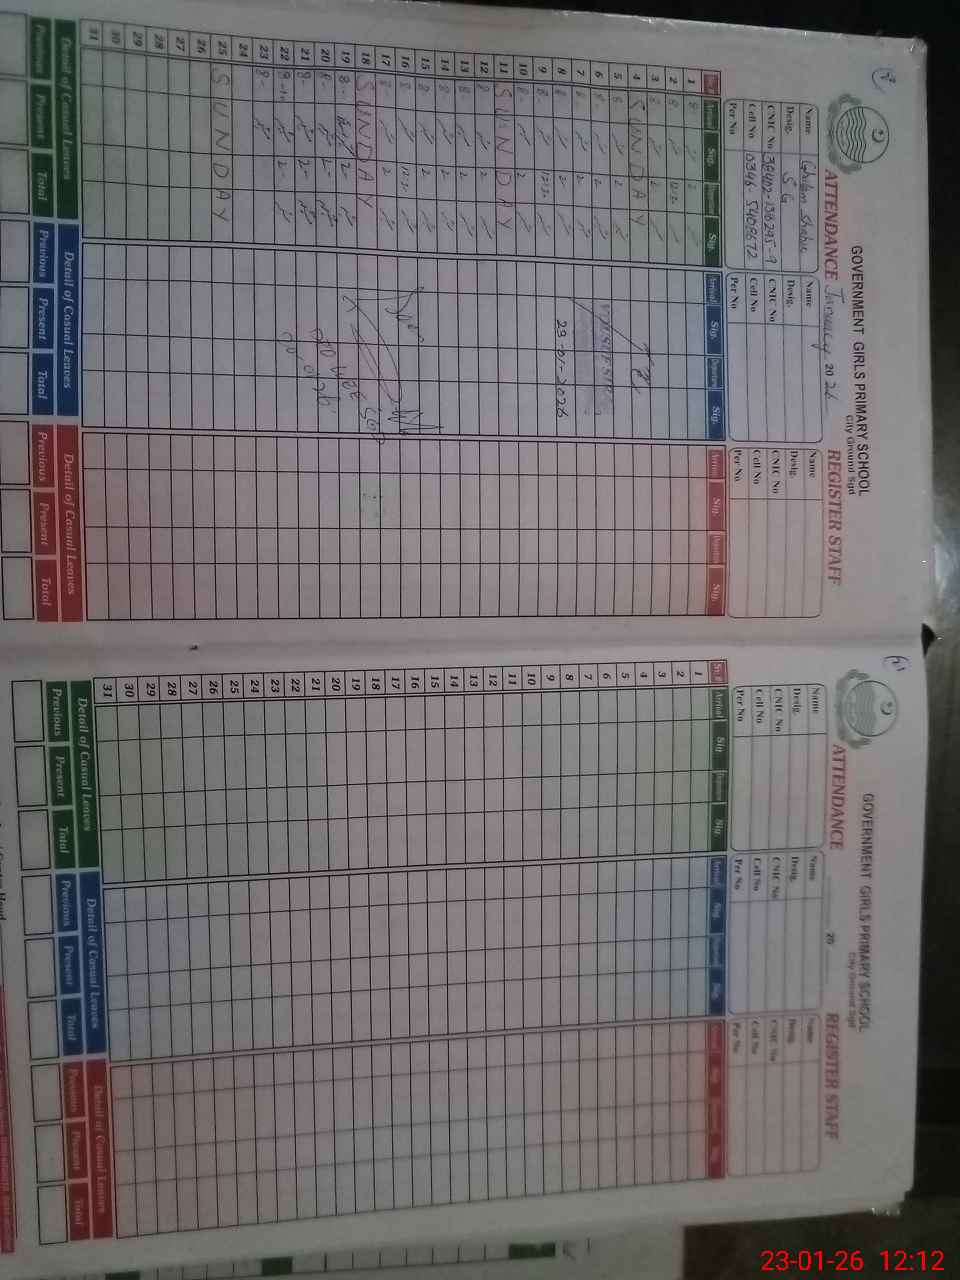 GOVERNMENT GIRLS PRIMARY SCHOOL
City Ground Sgd
ATTENDANCE January 20 26 REGISTER STAFF
Name Ghulam Shabir
Desig. S G
CNIC No
Cell No
Per No
Name
Desig.
CNIC No
Cell No
Per No
Name
Desig.
CNIC No
Cell No
Per No
Sr.# Arrival Sig. Departure Sig. Arrival Sig. Departure Sig. Arrival Sig. Departure Sig.
1 8 2
2 8 12:30
3 8 2
4 SUNDAY
5 8 2
6 8 2
7 8 2
8 8 2 23-01-2026
9 8 12:30
10 8 2
11 SUNDAY
12 8 2
13 8 2
14 8 2
15 8 2
16 8 12:30
17 8 2
18 SUNDAY
19 8 2
20 8 2
21 8 2
22 2
23 8
24
25 SUNDAY
26
27
28
29
30
31
Detail of Casual Leaves Detail of Casual Leaves Detail of Casual Leaves
Previous Present Total Previous Present Total Previous Present Total
GOVERNMENT GIRLS PRIMARY SCHOOL
City Ground Sgd
ATTENDANCE 20 REGISTER STAFF
Name
Desig.
CNIC No
Cell No
Per No
Name
Desig.
CNIC No
Cell No
Per No
Name
Desig.
CNIC No
Cell No
Per No
Sr.# Arrival Sig. Departure Sig. Arrival Sig. Departure Sig. Arrival Sig. Departure Sig.
1
2
3
4
5
6
7
8
9
10
11
12
13
14
15
16
17
18
19
20
21
22
23
24
25
26
27
28
29
30
31
Detail of Casual Leaves Detail of Casual Leaves Detail of Casual Leaves
Previous Present Total Previous Present Total Previous Present Total
23-01-26 12:12